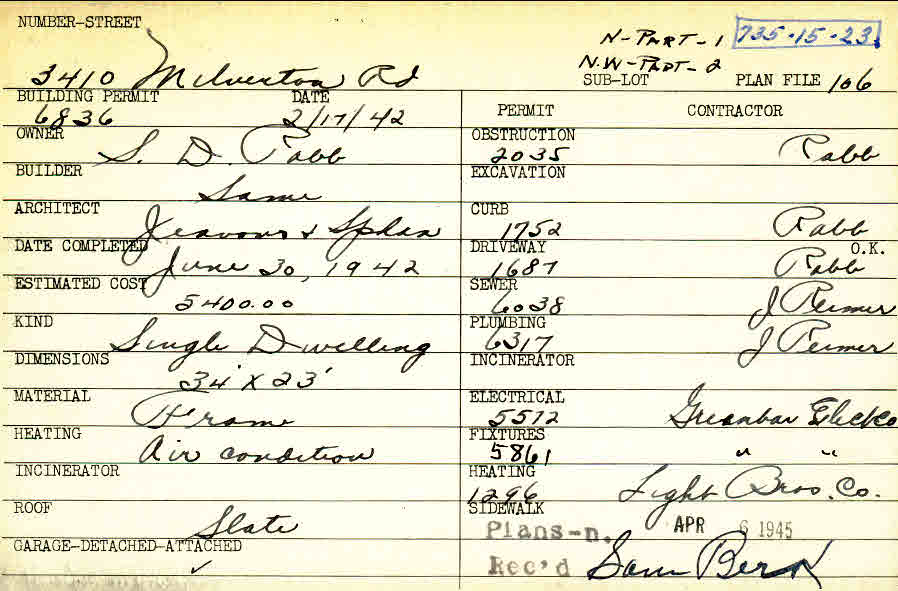 NUMBER-STREET
N-PART-1 735-15-23
N.W-PART-2
3410 Milverton Rd
SUB-LOT PLAN FILE 106
BUILDING PERMIT DATE
6836 2/17/42
OWNER S. D. Rabb
BUILDER Same
ARCHITECT Jeavons &
DATE COMPLETED June 30, 1942
ESTIMATED COST 5400.00
KIND Single Dwelling
DIMENSIONS 34' X 23'
MATERIAL Frame
HEATING Air condition
INCINERATOR
ROOF Slate
GARAGE-DETACHED-ATTACHED
✓
PERMIT CONTRACTOR
OBSTRUCTION
2035 Rabb
EXCAVATION
CURB
1752 Rabb
DRIVEWAY O.K.
1687 Rabb
SEWER
6038 J Reimer
PLUMBING
6317 J Reimer
INCINERATOR
ELECTRICAL
5512 Elec Co
FIXTURES
5861 " "
HEATING
1296 Light Bros. Co.
SIDEWALK
Plans-n. APR 6 1945
Rec'd Sam Bern